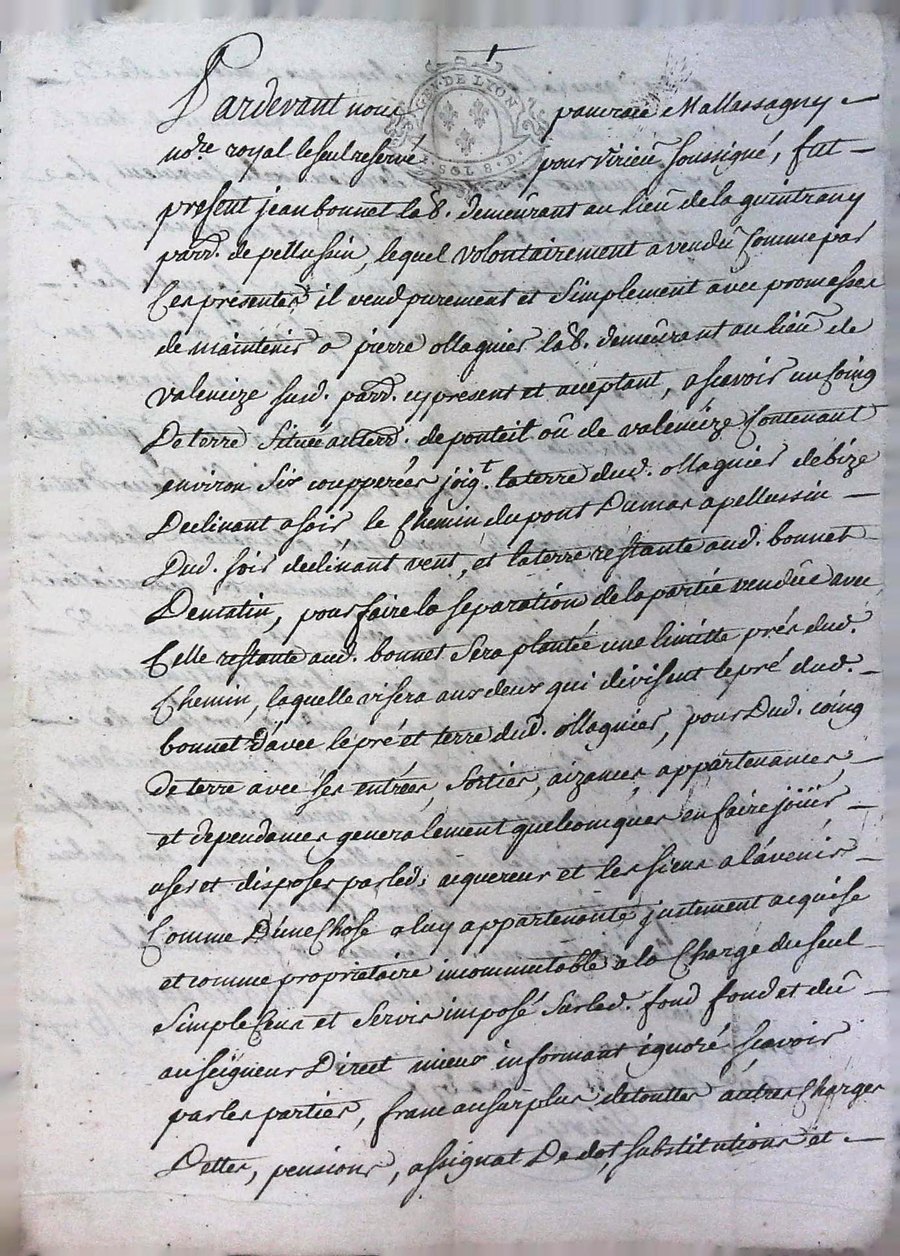 GEN. DE LYON
SOLS. D.
Pardevant nous pancrace Mallassagny
no.re royal le seul reservé pour virieû soussigné, fut
présent jean bonnet lab.r demeûrant au lieû de la quintrany
parr. de pellussin, lequel volontairement a vendû comme par
ces presentes il vend purement et simplement avec promesses
de maintenir a pierre ollagnier lab.r demeûrant au lieû de
valencize susd. parr. cy present et acéptant, a scavoir un coing
De terre située au terr. de ponteil oû de valencize contenant
environ six coupperées joig.t la terre dud. ollagnier de bize
Declinant a soir le chemin du pont Dumas a pellussin
Dud. soir declinant vent, et la terre restante aud. bonnet
De matin, pour faire la separation de la partie vendûe avec
celle restante aud. bonnet sera plantée une limitte prés dud.
chemin, laquelle visera aux deux qui divisent le pré dud.
bonnet d'avec le pré et terre dud. ollagnier, pour Dud. coing
de terre avec ses entrées, sorties, aizances, appartenances,
et dependances generalement quelconques en faire joüir
user et disposer par led. aquereur et les siens a l'avenir
comme D'une chose a luy appartenante justement acquise
et comme proprietaire incommutable a la charge du seul
simple cens et servis imposé sur led. fond fond et dû
au seigneur Direct mieux informant ignoré scavoir
par les parties, franc au surplus de touttes autres charges
Dettes, pensions, assignat De dot, substitutions et